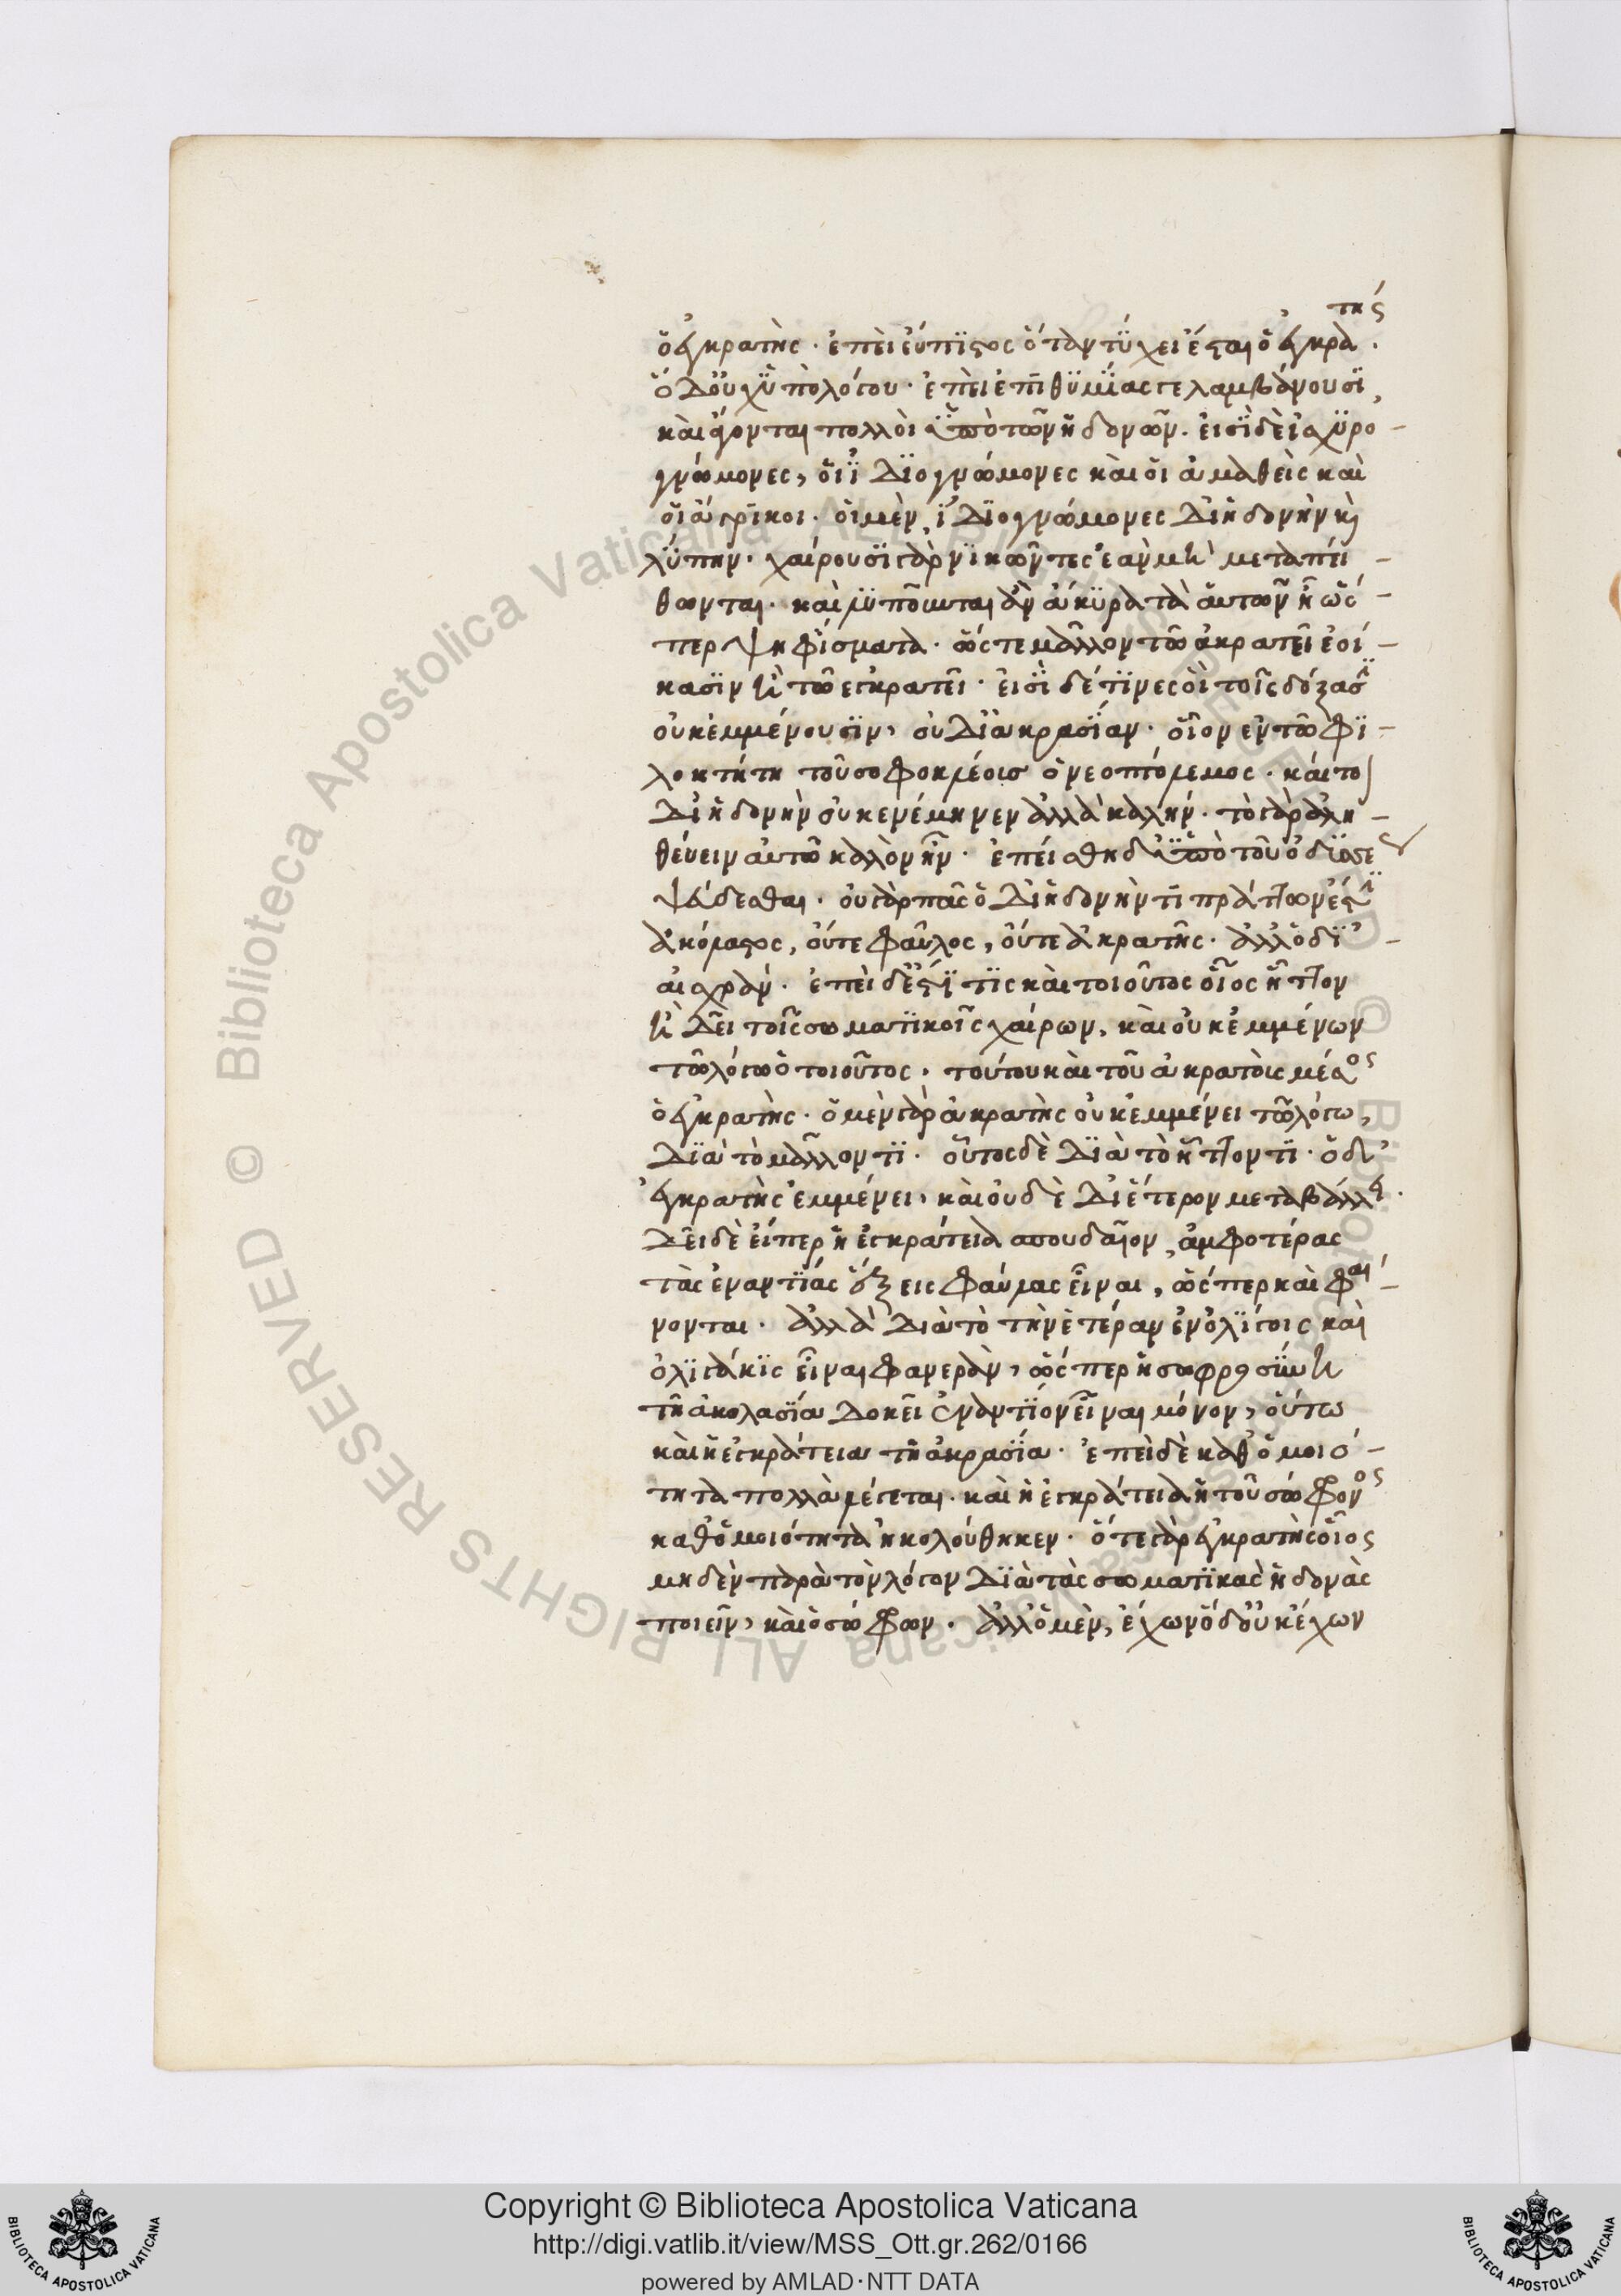 ὁ ἐγκρατὴς· ἐπεὶ εὔπιστος ὅταν τύχει ἔσται ὁ ἐγκρατής
ὁ δ' οὐχ ὑπὸ λόγου· ἐπεὶ ἐπιθυμίας γε λαμβάνουσι,
καὶ ἄγονται πολλοὶ ὑπὸ τῶν ἡδονῶν. εἰσὶ δὲ ἰσχυρο-
γνώμονες, οἱ ἰδιογνώμονες καὶ οἱ ἀμαθεῖς καὶ
οἱ ἄγροικοι. οἱ μὲν ἰδιογνώμονες δι' ἡδονὴν καὶ
λύπην. χαίρουσι γὰρ νικῶντες ἐὰν μὴ μεταπεί-
θωνται. καὶ λυποῦνται ἂν ἄκυρα τὰ αὐτῶν ᾖ ὥσ-
περ ψηφίσματα. ὥστε μᾶλλον τῶ ἀκρατεῖ ἐοί-
κασιν ἢ τῶ ἐγκρατεῖ· εἰσὶ δέ τινες οἳ τοῖς δόξασι
οὐκ ἐμμένουσιν, οὐ δι' ἀκρασίαν· οἷον ἐν τῶ φι-
λοκτήτη τοῦ σοφοκλέους ὁ νεοπτόλεμος. καίτοι
δι' ἡδονὴν οὐκ ἐνέμηνεν ἀλλὰ καλήν. τὸ γὰρ ἀλη-
θεύειν αὐτῶ καλὸν ἦν. ἐπείσθη δ' ὑπὸ τοῦ ὀδυσσέως
ψεύδεσθαι. οὐ γὰρ πᾶς ὁ δι' ἡδονήν τι πράττων ἐστὶ
ἀκόλαστος, οὔτε φαῦλος, οὔτε ἀκρατής. ἀλλ' ὁ δι'
αἰσχράν. ἐπεὶ δ' ἔστι τις καὶ τοιοῦτος οἷος ἧττον
ἢ δεῖ τοῖς σωματικοῖς χαίρων, καὶ οὐκ ἐμμένων
τῶ λόγω ὁ τοιοῦτος. τούτου καὶ τοῦ ἀκρατοῦς μέσος
ὁ ἐγκρατής. ὁ μὲν γὰρ ἀκρατὴς οὐκ ἐμμένει τῶ λόγω,
διὰ τὸ μᾶλλόν τι. οὗτος δὲ διὰ τὸ ἧττόν τι. ὁ δ'
ἐγκρατὴς ἐμμένει, καὶ οὐδὲ δι' ἕτερον μεταβάλλει.
δεῖ δὲ εἴπερ ἡ ἐγκράτεια σπουδαῖον, ἀμφοτέρας
τὰς ἐναντίας ἕξεις φαύλας εἶναι, ὥσπερ καὶ φαί-
νονται. ἀλλὰ διὰ τὸ τὴν ἑτέραν ἐν ὀλίγοις καὶ
ὀλιγάκις εἶναι φανεράν, ὥσπερ ἡ σωφροσύνη
τῆ ἀκολασία δοκεῖ ἐναντίον εἶναι μόνον, οὕτω
καὶ ἡ ἐγκράτεια τῆ ἀκρασία. ἐπεὶ δὲ καθ' ὁμοιό-
τητα πολλὰ λέγεται. καὶ ἡ ἐγκράτεια ἡ τοῦ σώφρονος
καθ' ὁμοιότητα ἠκολούθηκεν. ὅ τε γὰρ ἐγκρατὴς οἷος
μηδὲν παρὰ τὸν λόγον διὰ τὰς σωματικὰς ἡδονὰς
ποιεῖν, καὶ ὁ σώφρων. ἀλλ' ὁ μὲν, ἔχων ὁ δ' οὐκ ἔχων
Copyright © Biblioteca Apostolica Vaticana
http://digi.vatlib.it/view/MSS_Ott.gr.262/0166
powered by AMLAD·NTT DATA
BIBLIOTECA APOSTOLICA VATICANA
BIBLIOTECA APOSTOLICA VATICANA
© Biblioteca Apostolica Vaticana ALL RIGHTS RESERVED © Biblioteca Apostolica Vaticana ALL RIGHTS RESERVED